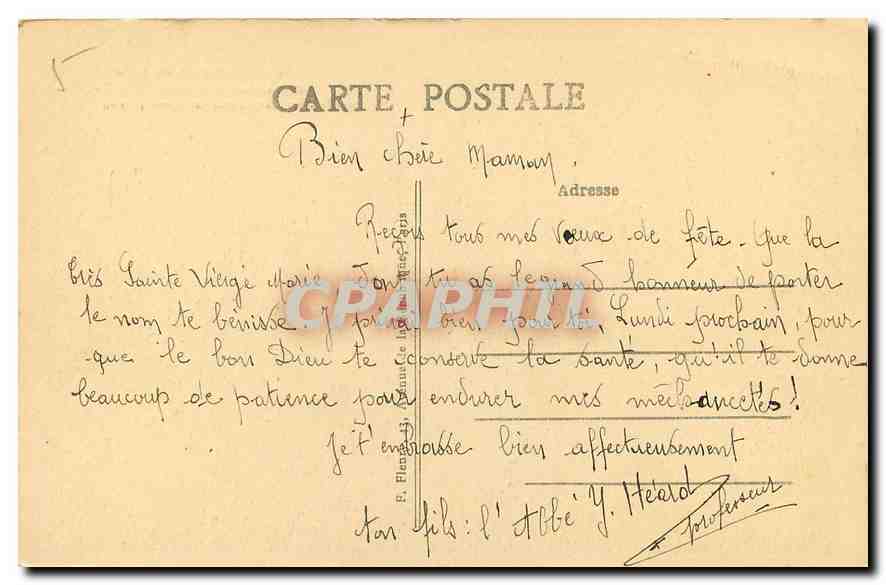 CARTE POSTALE
+
Bien chère Maman,
Adresse
Reçois tous mes vœux de fête. Que la
très Sainte Vierge Marie dont tu as le grand honneur de porter
le nom te bénisse. Je prierai bien pour toi, Lundi prochain, pour
que le bon Dieu te conserve la santé, qu'il te donne
beaucoup de patience pour endurer mes méchancetés !
Je t'embrasse bien affectueusement
ton fils : l'Abbé Y. Héard
professeur
F. Fleury, Avenue de Paris
CPAPHIL